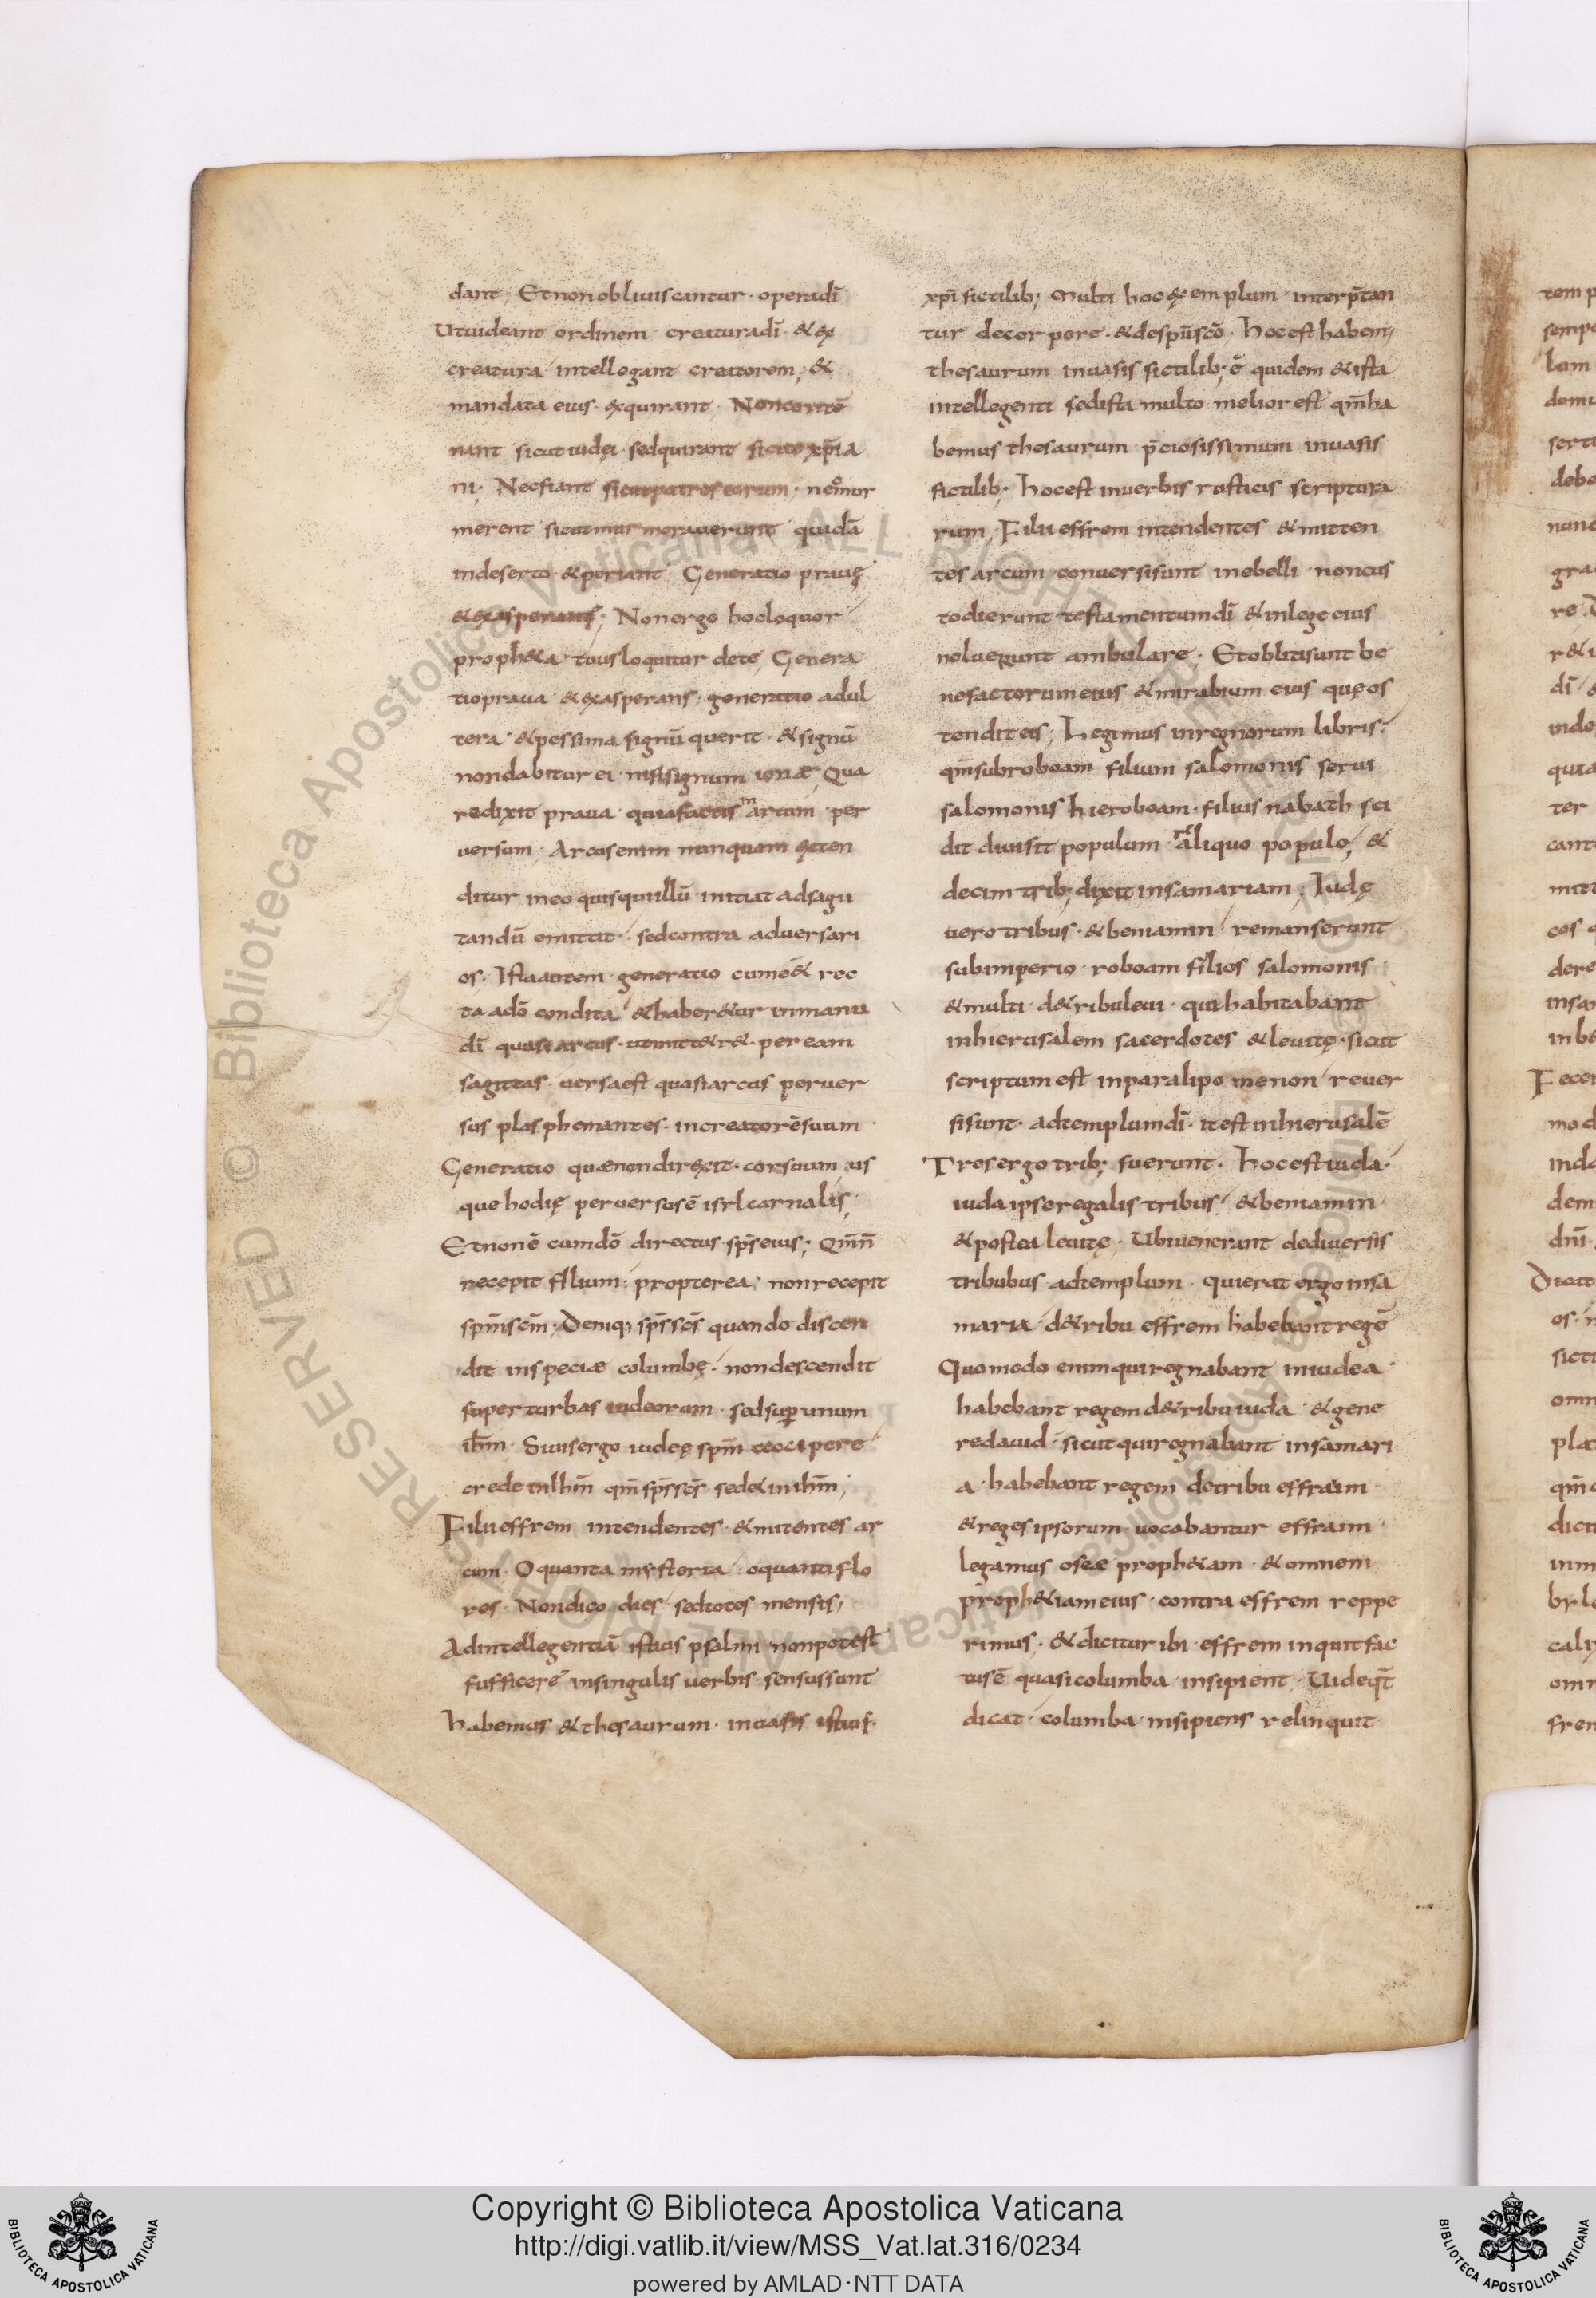 dant; Et non obliuiscantur · opera dī
Ut uideant ordinem creatura dī · & ex
creatura intellegant creatorem; &
mandata eius · exquirant; Non contē
nant sicut iudęi · sed quirant sicut xp̄ia
ni · Nec fiant sicut patres eorum · ne mur
merent sicut murmorauerunt quidā
in deserto · & periant; Generatio prauę
& exasperans; Non ergo hoc loquor
proph&a · tuus loquitur de te; Genera
tio praua & exasperans · generatio adul
tera · & pessima signū querit · & signū
non dabitur ei nisi signum ionæ; Qua
re dixit praua · quia factis m artum · per
uersum · Arcus enim nunquam exten
ditur in eo quis qui illū mittat ad sagit
tandū emittit · sed contra aduersari
os · Ista autem generatio cum & rec
ta ad dō condita & haber&ur in manu
dī quasi arcus · ut mitt&r& · per eam
sagittas uersa est quasi arcus peruer
sus plasphemantes · in creatorē suum
Generatio quæ non direxit · cor suum us
que hodię peruersus ē isrl carnalis;
Et non ē cum dō directus sps eius; Qm̄
recepit filium · propterea · non recepit
spm̄ scm̄ · Deniq; sps̄ scs̄ quando discen
dit in speciæ columbę · non descendit
super turbas iudeorum · sed sup unum
ihm̄ · Si uis ergo iudeę spm̄ accipere
crede in ihm̄ qm̄ sps̄ scs̄ sed& in ihm̄;
Filii effrem intendentes · & mitentes ar
cum · O quanta mysteria · o quanti flo
res · Non dico dies · sed totes mensis;
Ad intellegentiā istius psalmi non potest
sufficere in singulis uerbis sensus sunt
habemus & thesaurum · in uasis istius ·
xpi fictilib; Multi hoc exemplum interp̄tan
tur de corpore · & de sp̄u scō · hoc est habem;
thesaurum in uasis fictilib; ē quidem & ista
intellegenti sed ista multo melior est qm̄ ha
bemus thesaurum p̄ciosissimum in uasis
fictilib; hoc est in uerbis rusticis scriptura
rum; Filii effrem intendentes & mitten
tes arcum conuersi sunt in belli non cus
todierunt testamentum dī & in lege eius
noluerunt ambulare; Et obliti sunt be
nefactorum eius & mirabium eius quę os
tendit eis; Legimus in regnorum libris:
qm̄ sub roboam filium salomonis serui
salomonis hieroboam · filius nabath sci
dit diuisit populum a reliquo populo; &
decim trib; dixit in samariam; Iudę
uero tribus · & beniamin remanserunt
sub imperio · roboam filios salomonis
& multi d& ribu leui · qui habitabant
in hierusalem sacerdotes & leuitę · sicut
scriptum est in paralipomenon reuer
si sunt · ad templum dī · it est in hierusalē
Tres ergo trib; fuerunt · hoc est iuda ·
iuda ipse regalis tribus & beniamin ·
& postea leuitę · Ubi uenerunt de diuersis
tribubus ad templum · qui erat ergo in sa
maria d& ribu effrem habebant regē
Quomodo enim qui regnabant in iudea ·
habebant regem d& ribu iuda & gene
re dauid · sicut qui regnabant in samari
a · habebant regem de tribu effraim
& reges ipsorum uocabantur effraim
legamus oseæ proph&am · & omnem
proph&iam eius · contra effrem reppe
rimus · & dicitur ibi · effrem inquit fac
tus ē quasi columba insipient; Uide q̄t
dicat · columba insipiens relinquit
Copyright © Biblioteca Apostolica Vaticana
http://digi.vatlib.it/view/MSS_Vat.lat.316/0234
powered by AMLAD·NTT DATA